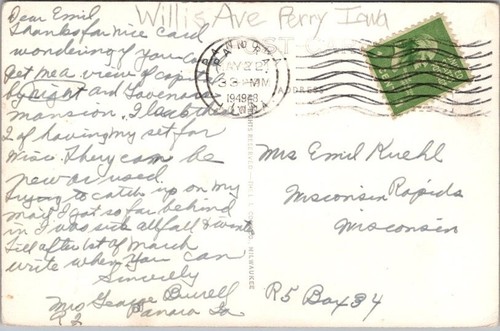 Willis Ave Perry Iowa
Dear Emil
Thanks for nice card
wondering if you can
get me a view of capitol
by night and Governors
mansion. I lack these
2 of having my set for
Wisc. They can be
new or used.
trying to catch up on my
mail I got so far behind
in I was sick all fall & winter
till after 1st of March
write when you can
Sincerely
Mrs George Burrell
R 2 Panora Ia
PANORA
MAY 22
3 PM
1948
IOWA
POST CARD
ADDRESS
MILWAUKEE
Mrs Emil Kuehl
Wisconsin Rapids
Wisconsin
R5 Box 34